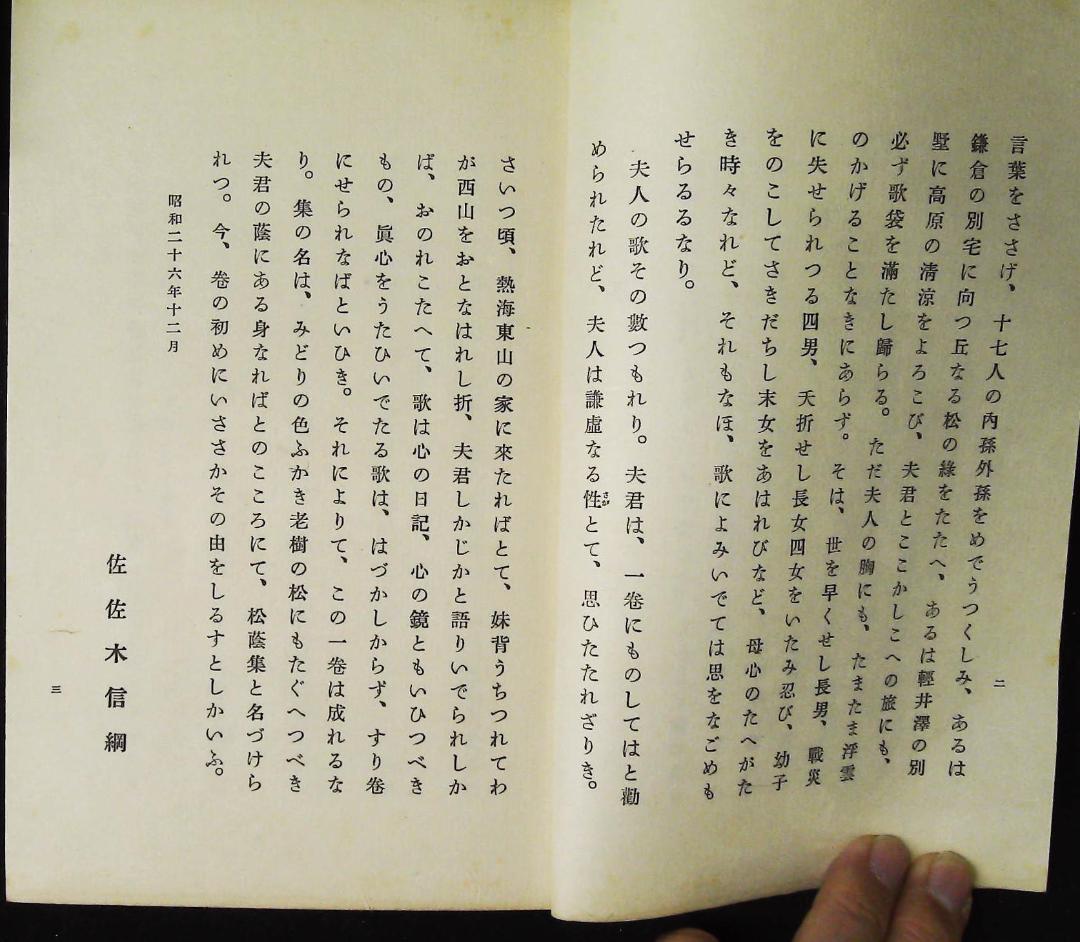 言葉をささげ、十七人の內孫外孫をめでうつくしみ、あるは
鎌倉の別宅に向つ丘なる松の綠をたたへ、あるは輕井澤の別
墅に高原の清涼をよろこび、夫君とここかしこへの旅にも、
必ず歌袋を滿たし歸らる。ただ夫人の胸にも、たまたま浮雲
のかげることなきにあらず。そは、世を早くせし長男、戰災
に失せられつる四男、夭折せし長女四女をいたみ忍び、幼子
をのこしてさきだちし末女をあはれびなど、母心のたへがた
き時々なれど、それもなほ、歌によみいでては思をなごめも
せらるるなり。
夫人の歌その數つもれり。夫君は、一卷にものしてはと勸
められたれど、夫人は謙虛なる性さがとて、思ひたたれざりき。
二
さいつ頃、熱海東山の家に來たればとて、妹背うちつれてわ
が西山をおとなはれし折、夫君しかじかと語りいでられしか
ば、おのれこたへて、歌は心の日記、心の鏡ともいひつべき
もの、眞心をうたひいでたる歌は、はづかしからず、すり卷
にせられなばといひき。それによりて、この一卷は成れるな
り。集の名は、みどりの色ふかき老樹の松にもたぐへつべき
夫君の蔭にある身なればとのこころにて、松蔭集と名づけら
れつ。今、卷の初めにいささかその由をしるすとしかいふ。
昭和二十六年十二月
佐佐木信綱
三